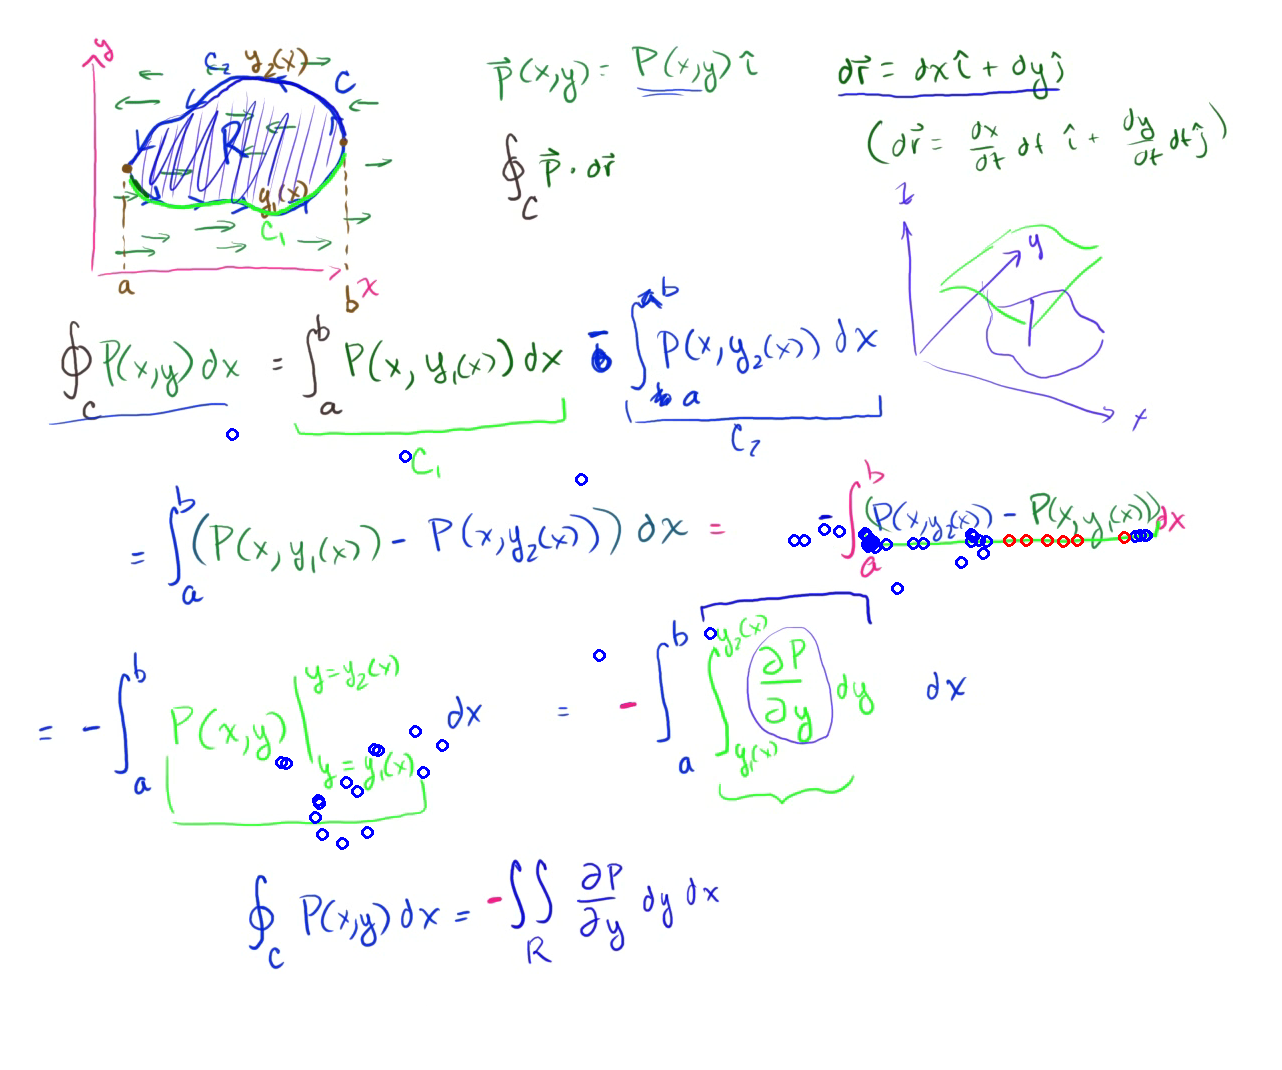 y
C₂ y₂(x) C
R
y₁(x)
C₁
a b x
P⃗(x,y) = P(x,y) î
dr⃗ = dx î + dy ĵ
(dr⃗ = dx/dt dt î + dy/dt dt ĵ)
∮_C P⃗ · dr⃗
z
y
x
∮_C P(x,y) dx = ∫_a^b P(x, y₁(x)) dx - ∫_a^b P(x, y₂(x)) dx
C₁ C₂
= ∫_a^b (P(x, y₁(x)) - P(x, y₂(x))) dx = - ∫_a^b (P(x, y₂(x)) - P(x, y₁(x))) dx
= - ∫_a^b P(x,y) |_{y = y₁(x)}^{y = y₂(x)} dx = - ∫_a^b ∫_{y₁(x)}^{y₂(x)} ∂P/∂y dy dx
∮_C P(x,y) dx = - ∬_R ∂P/∂y dy dx